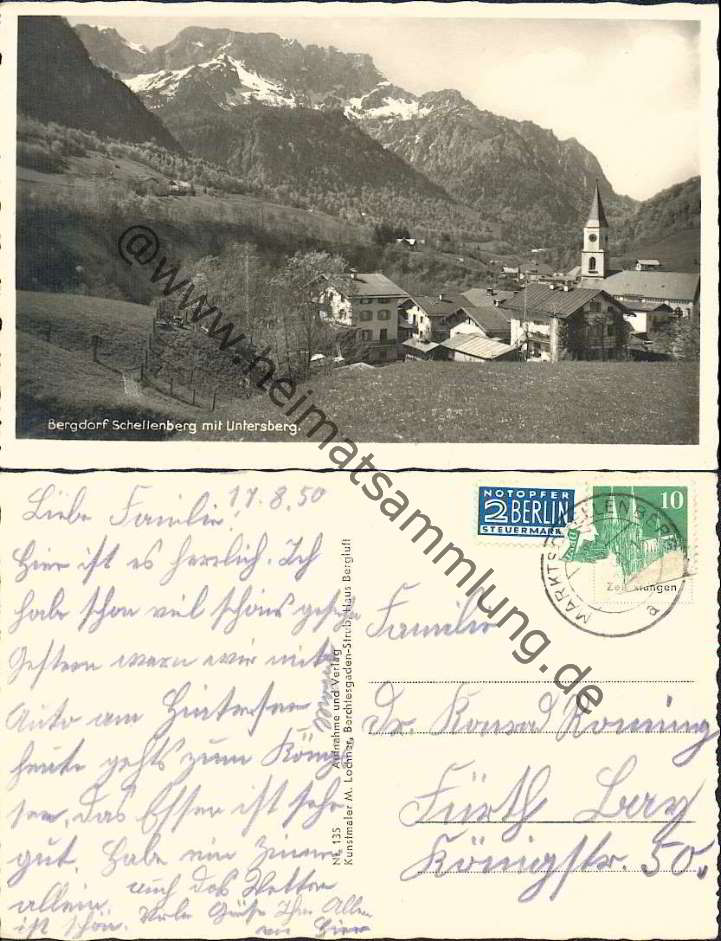 Bergdorf Schellenberg mit Untersberg.
@www.heimatsammlung.de
17.8.50
Liebe Familie!
Hier ist es herrlich. Ich
hab schon viel schönes gesehen
Gestern waren wir mit
Auto am Hintersee
heute gehts zum König
see, das Essen ist sehr
gut. Habe ein Zimmer
allein, auch das Wetter
ist schön. Viele Grüße Ihnen Allen
Nr. 135 Aufnahme und Verlag
Kunstmaler M. Lochner, Berchtesgaden-Strub, Haus Bergluft
NOTOPFER
2 BERLIN
STEUERMARKE
10
MARKTSCHELLENBERG
Familie
Dr. Konrad
Fürth Bay
Königstr. 50.